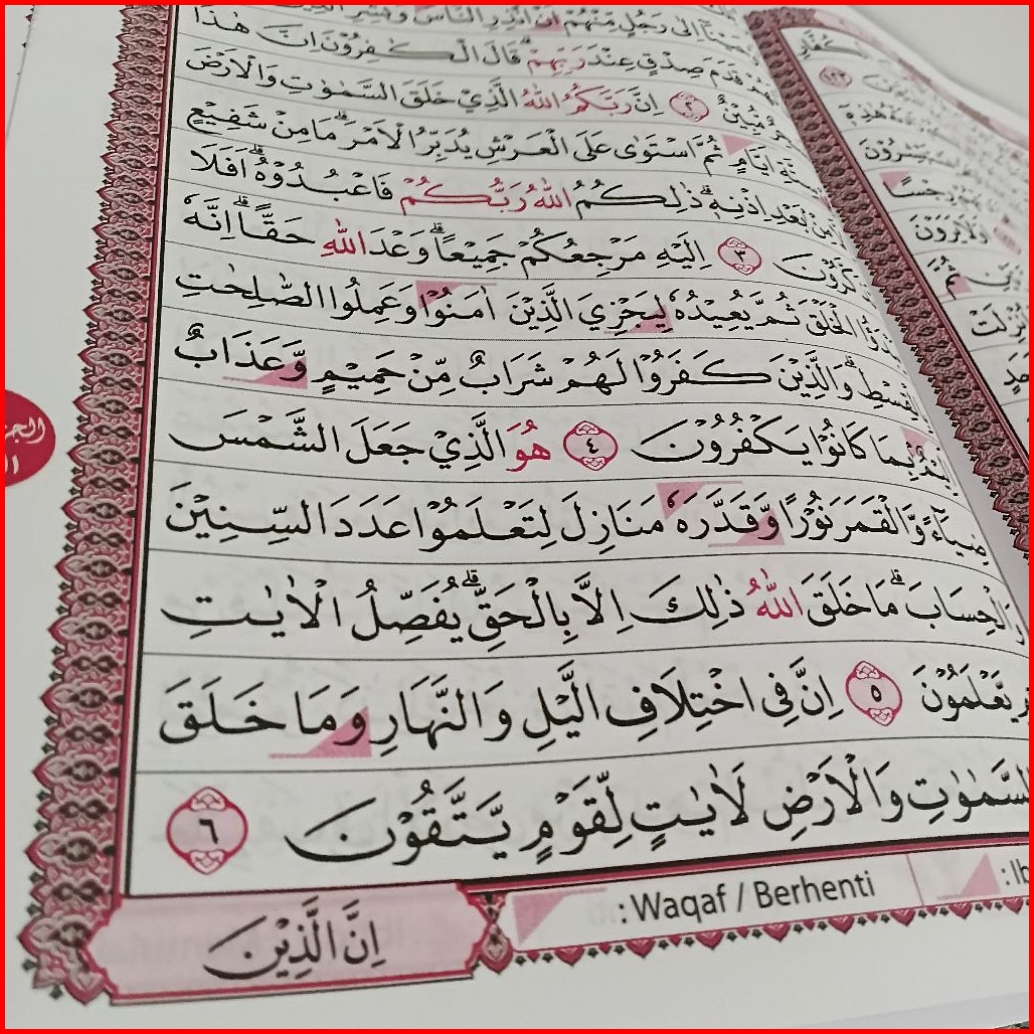 اِلٰى رَجُلٍ مِّنْهُمْ اَنْ اَنْذِرِ النَّاسَ وَبَشِّرِ الَّذِيْنَ
لَهُمْ قَدَمَ صِدْقٍ عِنْدَ رَبِّهِمْ ۗ قَالَ الْكٰفِرُوْنَ اِنَّ هٰذَا
مُّبِيْنٌ ٢ اِنَّ رَبَّكُمُ اللّٰهُ الَّذِيْ خَلَقَ السَّمٰوٰتِ وَالْاَرْضَ
سِتَّةِ اَيَّامٍ ثُمَّ اسْتَوٰى عَلَى الْعَرْشِ يُدَبِّرُ الْاَمْرَ ۗ مَا مِنْ شَفِيْعٍ
مِنْۢ بَعْدِ اِذْنِهٖ ۗ ذٰلِكُمُ اللّٰهُ رَبُّكُمْ فَاعْبُدُوْهُ ۗ اَفَلَا
٣ اِلَيْهِ مَرْجِعُكُمْ جَمِيْعًا ۗ وَعْدَ اللّٰهِ حَقًّا ۗ اِنَّهٗ
الْخَلْقَ ثُمَّ يُعِيْدُهٗ لِيَجْزِيَ الَّذِيْنَ اٰمَنُوْا وَعَمِلُوا الصّٰلِحٰتِ
بِالْقِسْطِ ۗ وَالَّذِيْنَ كَفَرُوْا لَهُمْ شَرَابٌ مِّنْ حَمِيْمٍ وَّعَذَابٌ
بِمَا كَانُوْا يَكْفُرُوْنَ ٤ هُوَ الَّذِيْ جَعَلَ الشَّمْسَ
ضِيَاۤءً وَّالْقَمَرَ نُوْرًا وَّقَدَّرَهٗ مَنَازِلَ لِتَعْلَمُوْا عَدَدَ السِّنِيْنَ
وَالْحِسَابَ ۗ مَا خَلَقَ اللّٰهُ ذٰلِكَ اِلَّا بِالْحَقِّ ۗ يُفَصِّلُ الْاٰيٰتِ
يَّعْلَمُوْنَ ٥ اِنَّ فِى اخْتِلَافِ الَّيْلِ وَالنَّهَارِ وَمَا خَلَقَ
السَّمٰوٰتِ وَالْاَرْضِ لَاٰيٰتٍ لِّقَوْمٍ يَّتَّقُوْنَ ٦
اِنَّ الَّذِيْنَ
: Waqaf / Berhenti